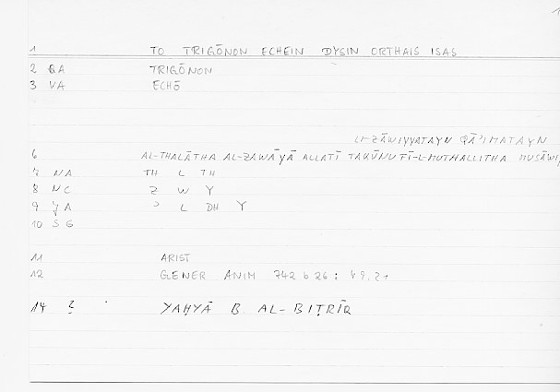 1 TO TRIGŌNON ECHEIN DYSIN ORTHAIS ISAS
2 QA TRIGŌNON
3 VA ECHŌ
LI-ZĀWIYYATAYN QĀ'IMATAYN
6 AL-THALĀTHA AL-ZAWĀYĀ ALLATĪ TAKŪNU FĪ-L-MUTHALLITHA
7 NA TH L TH
8 NC Z W Y
9 A ʾ L DH Y
10 SG
11 ARIST
12 GENER ANIM 742 b 26:
14 ? YAḤYĀ B AL-BIṬRĪQ